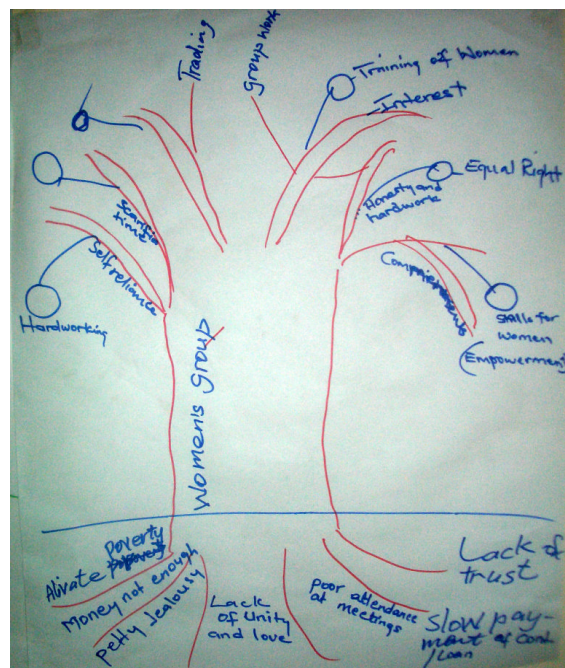 Trading
group work
Trining of Women
Interest
Equal Right
Honesty and
hardwork
time
Selfreliance
Hardworking
skills for
women
(Empowerment
Women's group
Alivate poverty
Money not enough
petty Jealousy
Lack
of Unity
and love
poor attendance
at meetings
Lack of
trust
slow pay-
ment of
/Loan